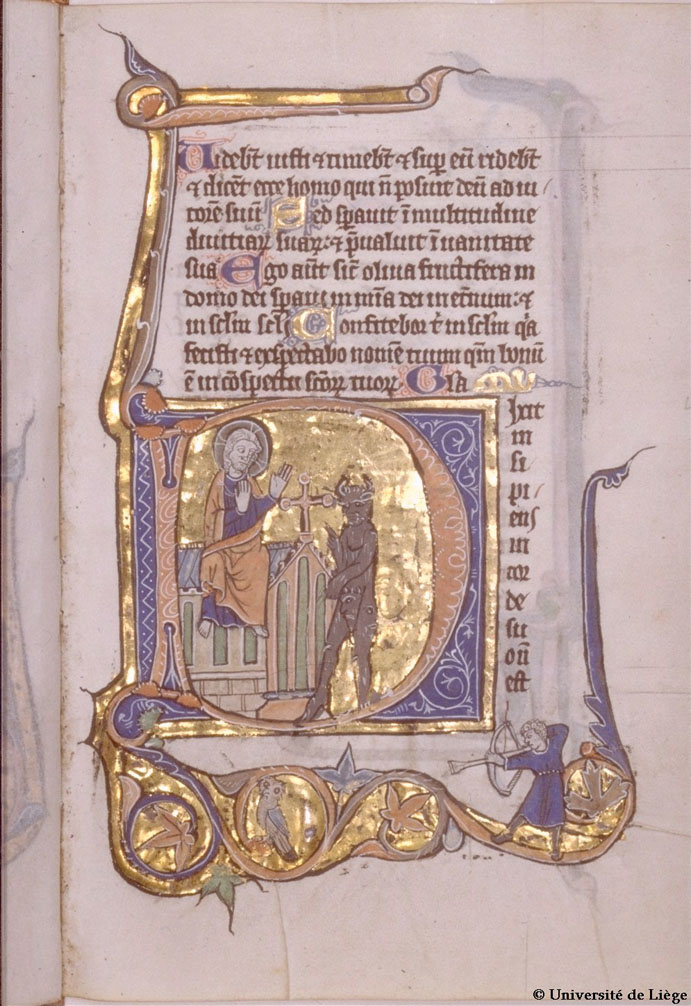 Videbt̄ iusti ⁊ timebt̄ ⁊ sup̄ eū ridebt̄
⁊ dicēt ecce homo qui n̄ posuit deū adiu/
torē suū Sed sp̄auit ī multitudine
diuitiaꝝ suaꝝ: ⁊ p̄ualuit ī uanitate
sua Ego aūt sic̄ oliua fructifera in
domo dei sp̄aui in mīa dei in et̄num: ⁊
in sclm̄ scl̄i Confitebor t̄ in sclm̄ qͣa
fecisti ⁊ exspectabo nomē tuum qm̄ bonū
ē in cōspectu scōꝝ tuoꝝ Gl̄a
Dixit
in
si
pi/
ens
in
cor
de
su
o n̄
est
© Université de Liège